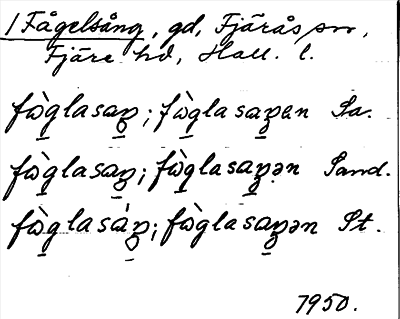 1 Fågelsång, gd, Fjärås sn,
Fjäre hd, Hall. l.
fὼglasaŋ; fὼglasaŋen Sa.
fὼglasaŋ; fὼglasaŋən Sand.
fὼglasáŋ; fὼglasaŋən St.
1950.